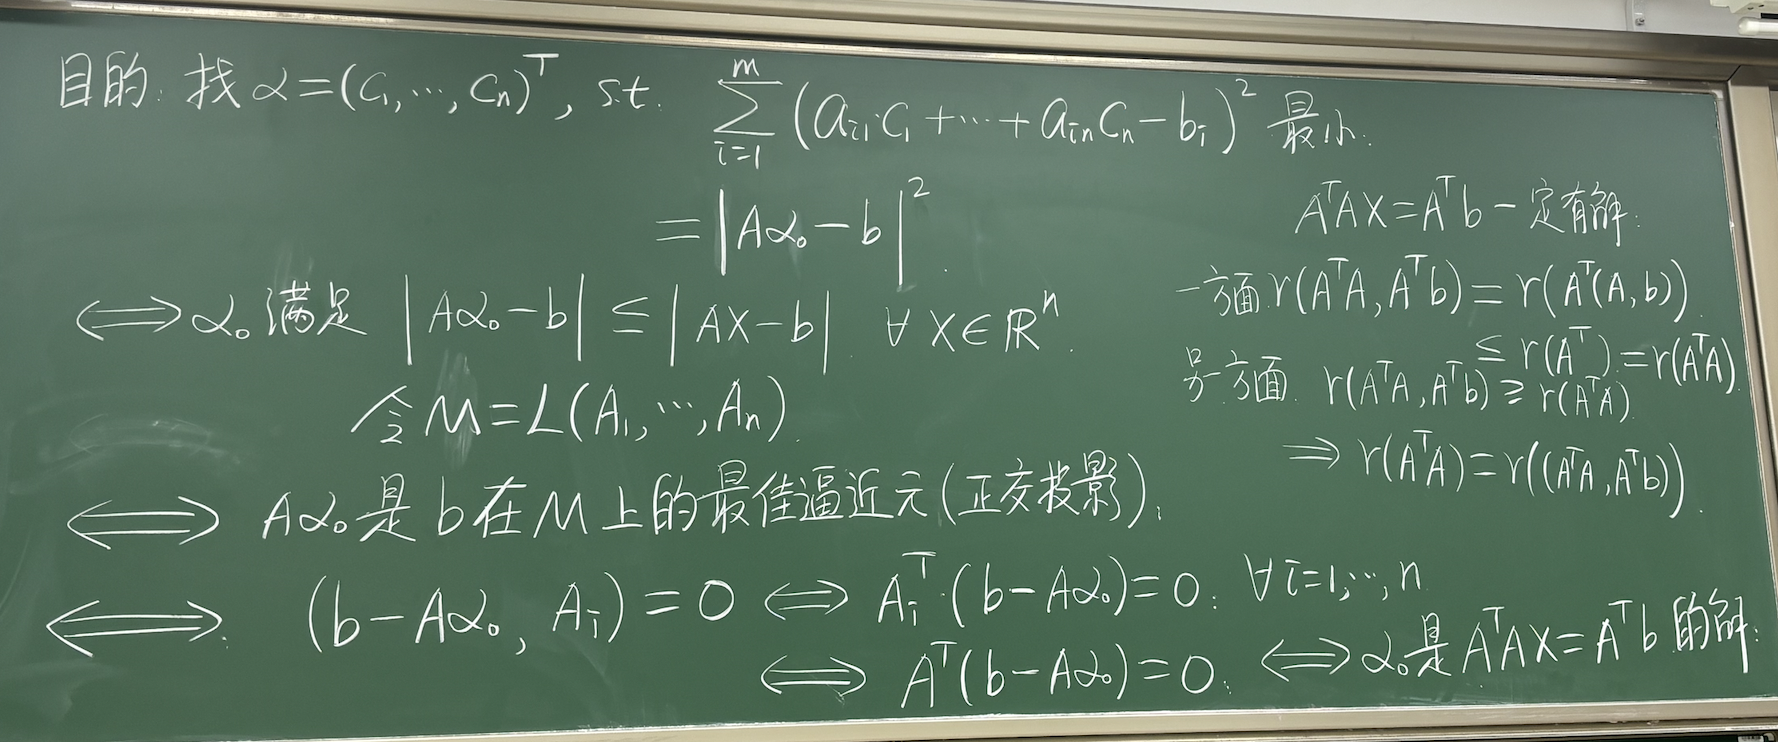 目的: 找 α=(c₁,…,cₙ)ᵀ, s.t. ∑_{i=1}^{m} (a_{i1}c₁+…+a_{in}cₙ-b_i)² 最小.
=|Aα₀-b|².
⟺ α₀ 满足 |Aα₀-b| ≤ |AX-b|. ∀ X∈ℝⁿ.
令 M=L(A₁,…,Aₙ).
⟺ Aα₀是b在M上的最佳逼近元(正交投影).
⟺. (b-Aα₀, A_i)=0 ⟺ A_iᵀ·(b-Aα₀)=0. ∀i=1,…,n
⟺ Aᵀ(b-Aα₀)=0. ⟺ α₀是AᵀAX=Aᵀb的解.
AᵀAX=Aᵀb一定有解.
一方面 r(AᵀA,Aᵀb)=r(Aᵀ(A,b)).
≤r(Aᵀ)=r(AᵀA).
另一方面. r(AᵀA,Aᵀb)≥r(AᵀA).
⇒ r(AᵀA)=r((AᵀA,Aᵀb)).